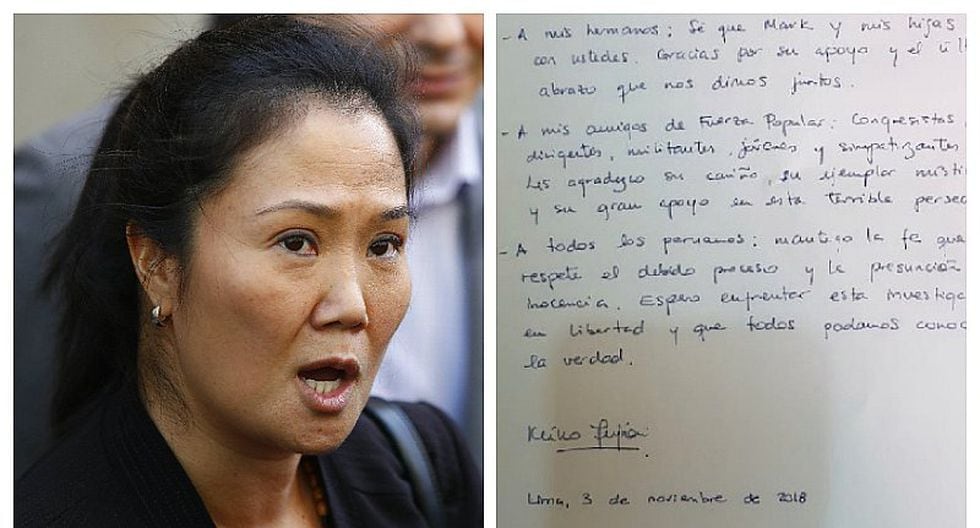 - A mis hermanos: Sé que Mark y mis hijas
con ustedes. Gracias por su apoyo y el últ
abrazo que nos dimos juntos.
- A mis amigos de Fuerza Popular: Congresistas,
dirigentes, militantes, jóvenes y simpatizantes
les agradezco su cariño, su ejemplar místi
y su gran apoyo en esta terrible persec
- A todos los peruanos: mantengo la fe que
respete el debido proceso y la presunción
inocencia. Espero enfrentar esta investiga
en libertad y que todos podamos conoc
la verdad.
Keiko Fujimori
Lima, 3 de noviembre de 2018